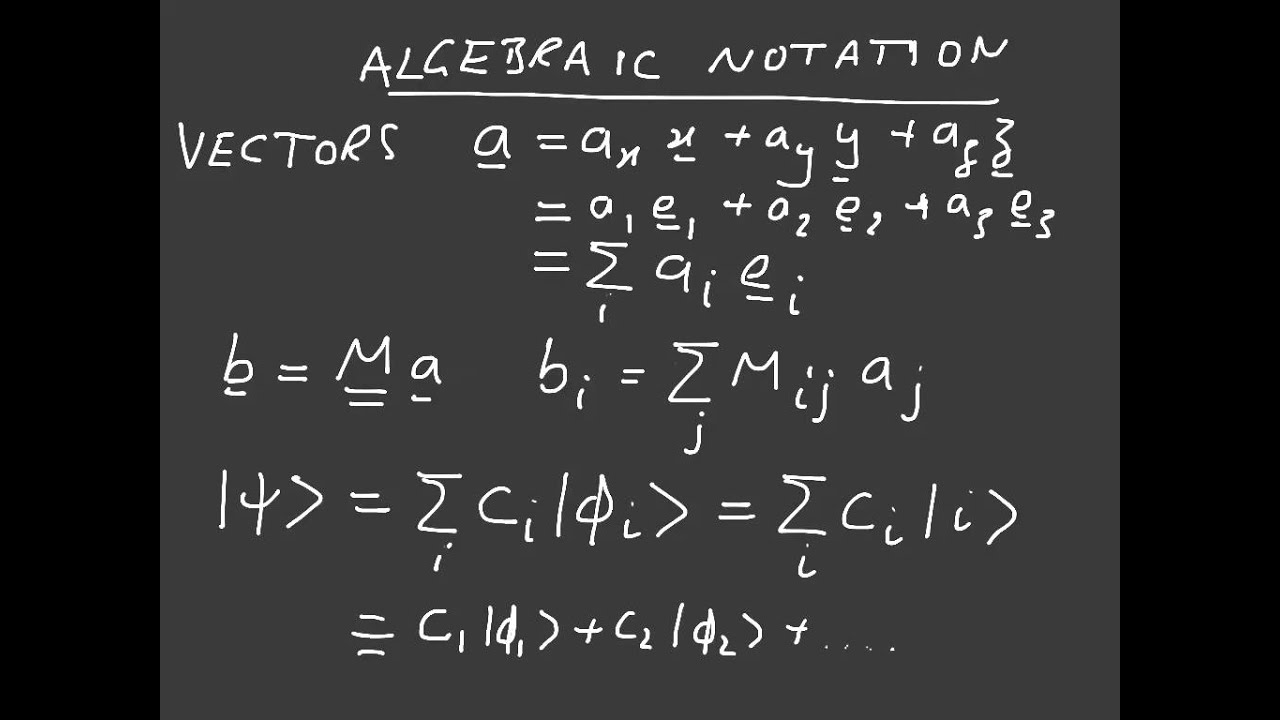 ALGEBRAIC NOTATION
VECTORS a̲ = aₓ x̲ + a_y y̲ + a_z z̲
= a₁ e̲₁ + a₂ e̲₂ + a₃ e̲₃
= ∑_i a_i e̲_i
b̲ = M̳ a̲ b_i = ∑_j M_ij a_j
|ψ> = ∑_i C_i |ϕ_i> = ∑_i C_i |i>
= C₁ |ϕ₁> + C₂ |ϕ₂> + .....